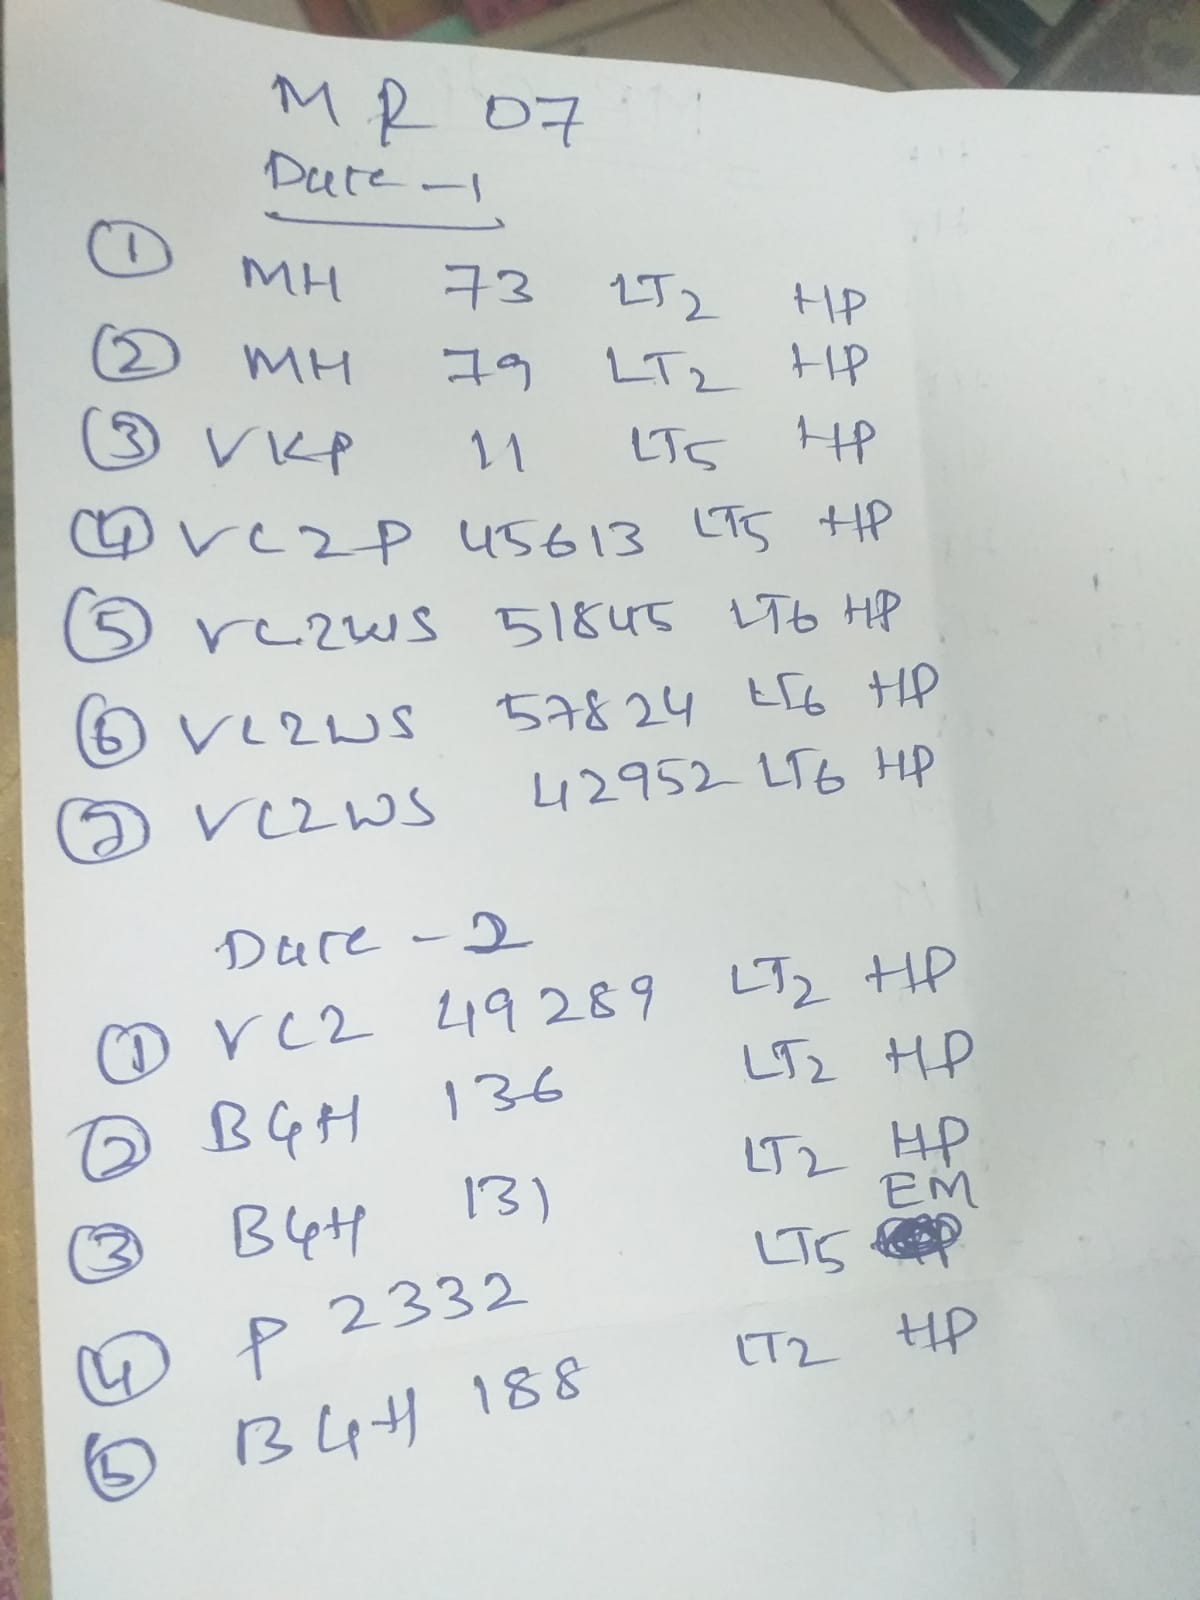 MR 07
Date - 1
① MH 73 LT2 HP
② MH 79 LT2 HP
③ VKP 11 LT5 HP
④ VC2P 45613 LT5 HP
⑤ VC2WS 51845 LT6 HP
⑥ VC2WS 57824 LT6 HP
⑦ VC2WS 42952 LT6 HP
Date - 2
① VC2 49289 LT2 HP
② B4H 136 LT2 HP
③ B4H 131 LT2 HP
④ P 2332 LT5 EM
⑤ B4H 188 LT2 HP